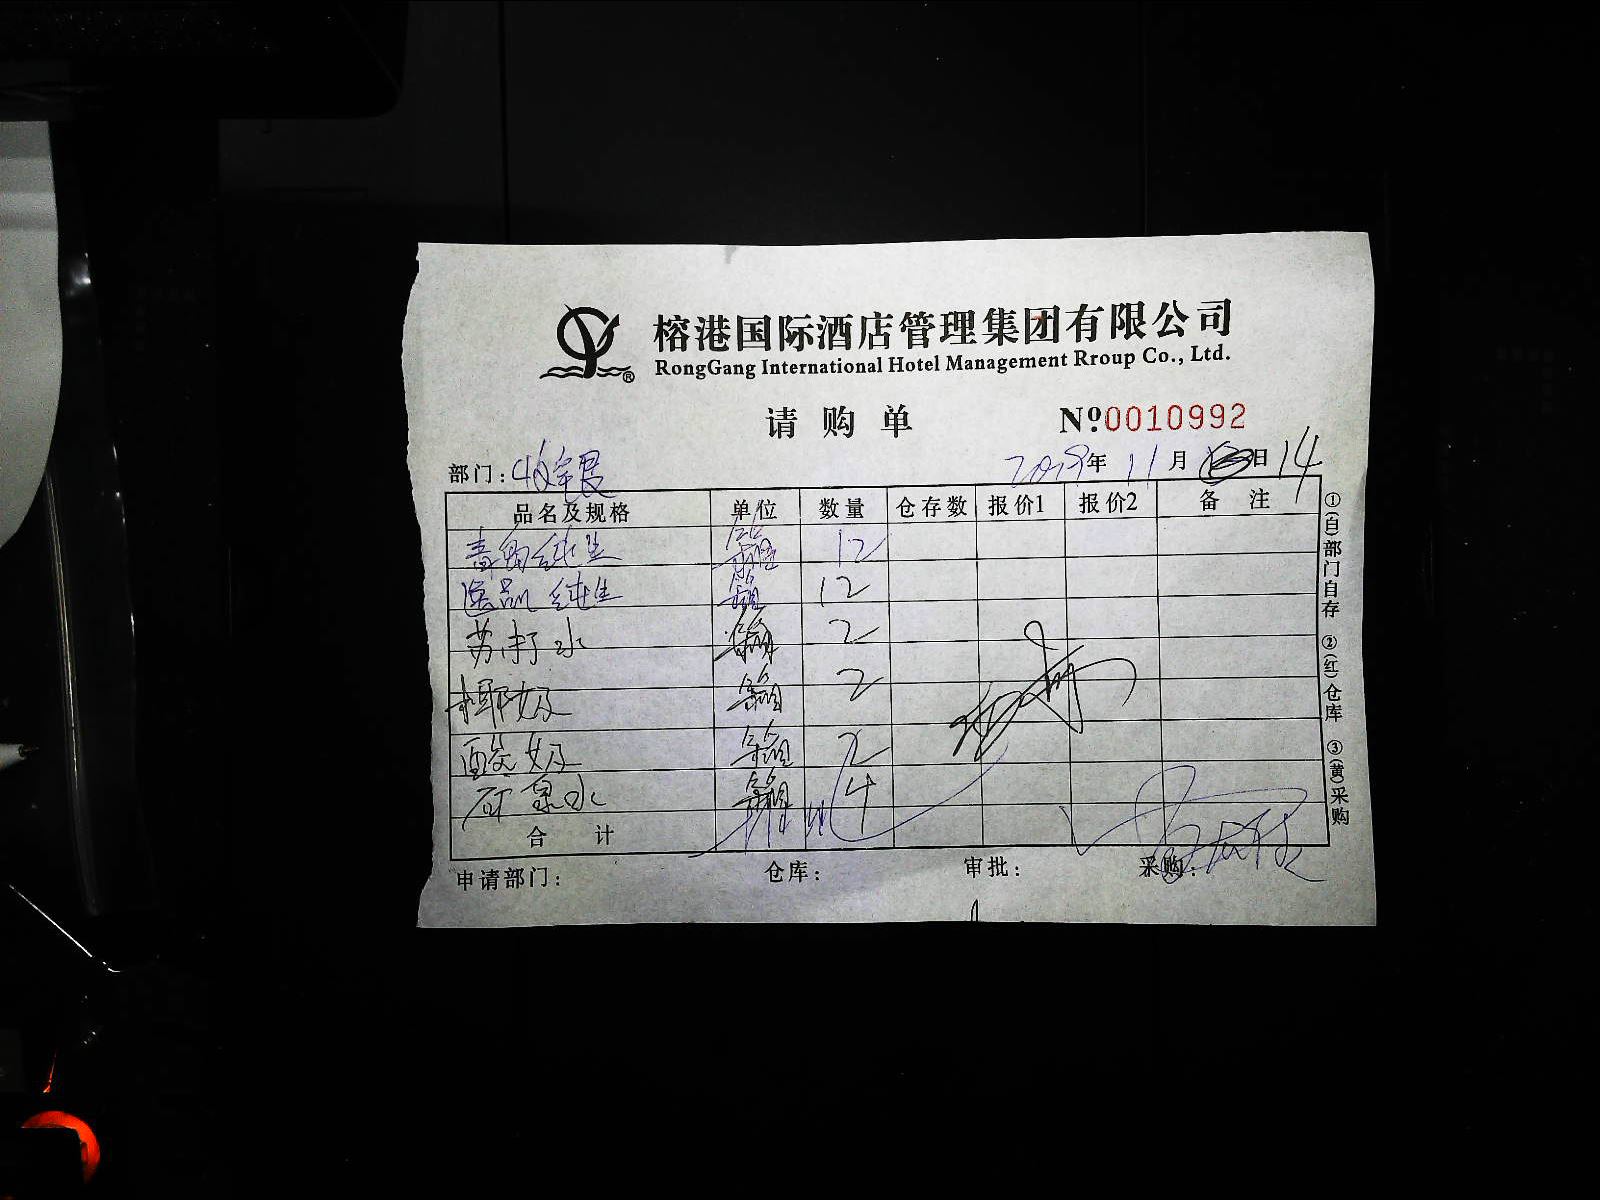 榕港国际酒店管理集团有限公司
RongGang International Hotel Management Rroup Co., Ltd.
请购单 Nº:0010992
部门:收银 2019年11月日14
品名及规格 单位 数量 仓存数 报价1 报价2 备注
纯生 箱 12
纯生 箱 12
苏打水 箱 2
椰奶 箱 2
酸奶 箱 2
矿泉水 箱 4
合计
申请部门: 仓库: 审批: 采购:
①(白)部门自存 ②(红)仓库 ③(黄)采购